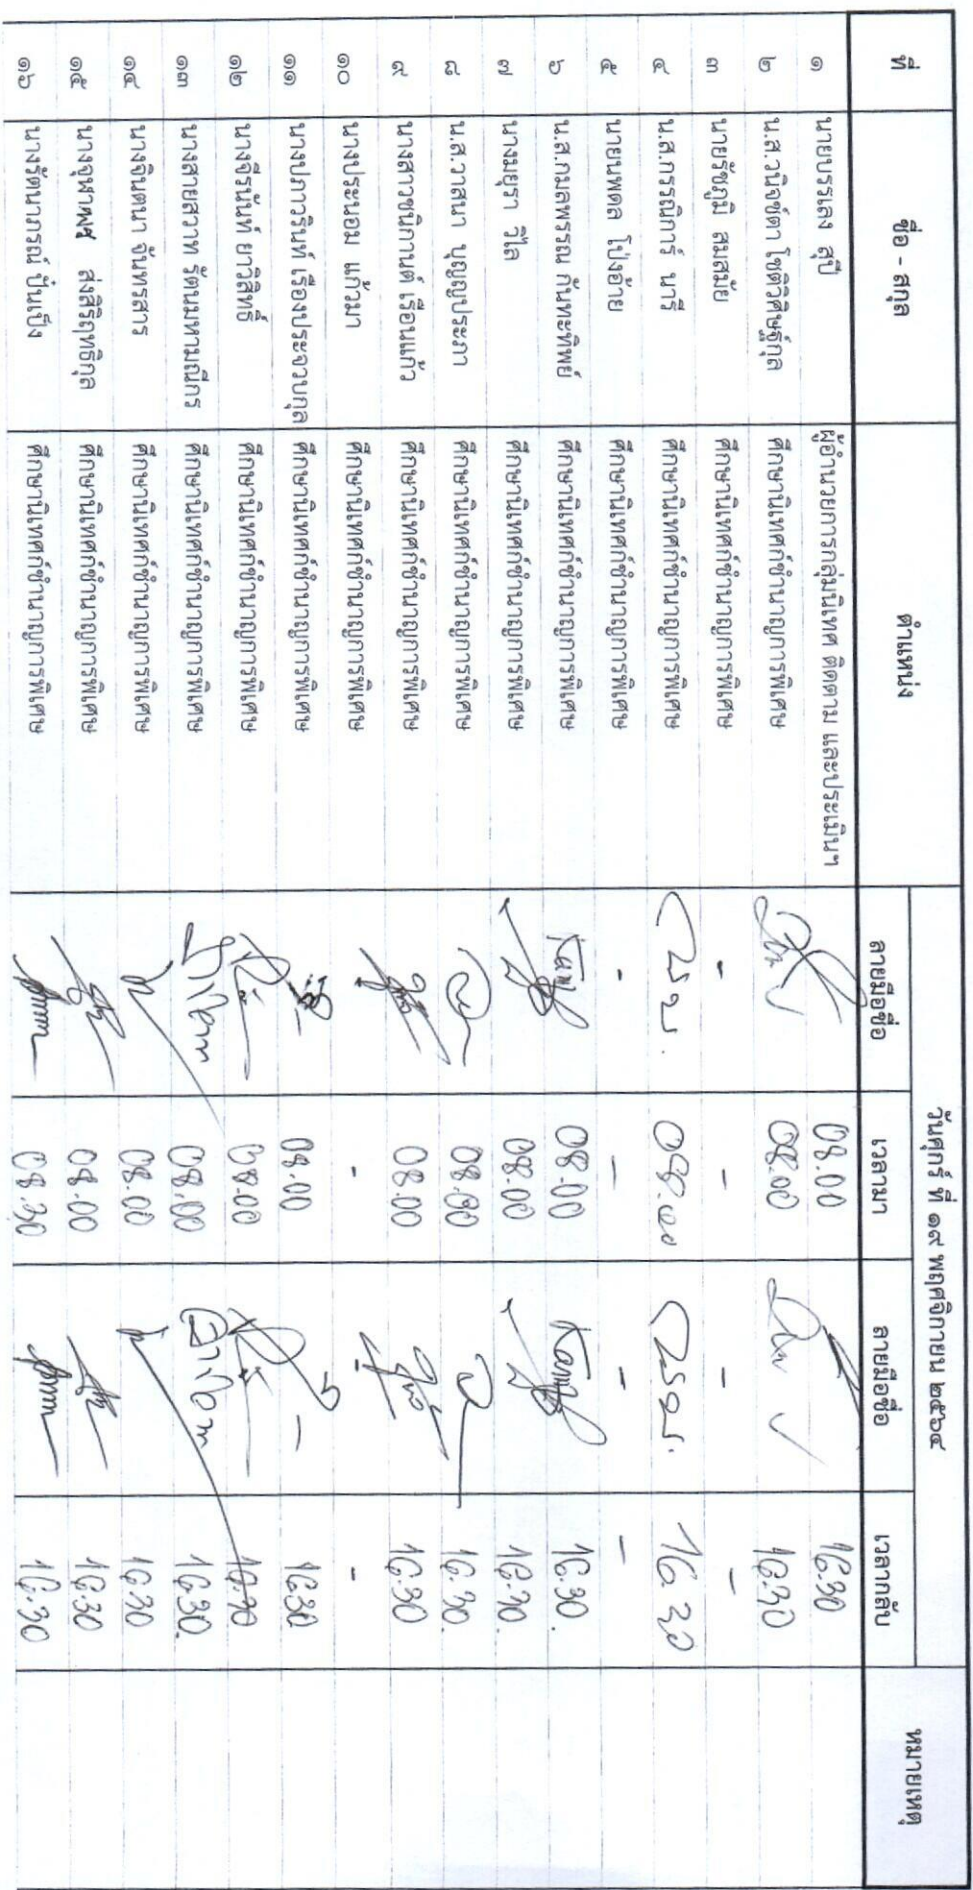 ที่ ชื่อ - สกุล ตำแหน่ง วันศุกร์ ที่ ๑๙ พฤศจิกายน ๒๕๖๔ หมายเหตุ
ลายมือชื่อ เวลามา ลายมือชื่อ เวลากลับ
๑ นายบรรเลง สุปี ผู้อำนวยการกลุ่มนิเทศ ติดตาม และประเมินฯ 08.00 16.30
๒ น.ส.วนิจช์ตา โชติวิศิษฐ์กุล ศึกษานิเทศก์ชำนาญการพิเศษ 08.00 16.30
๓ นายรัชภูมิ สมสมัย ศึกษานิเทศก์ชำนาญการพิเศษ - - - -
๔ น.ส.กรรณิการ์ นารี ศึกษานิเทศก์ชำนาญการพิเศษ 08.00 16.30
๕ นายนพดล โปงอ้าย ศึกษานิเทศก์ชำนาญการพิเศษ - - - -
๖ น.ส.กมลพรรณ กันทะทิพย์ ศึกษานิเทศก์ชำนาญการพิเศษ 08.00 16.30.
๗ นางมยุรา วิไล ศึกษานิเทศก์ชำนาญการพิเศษ 08.00 16.30.
๘ น.ส.วาสนา บุญประภา ศึกษานิเทศก์ชำนาญการพิเศษ 08.00 16.30.
๙ นางสาวชนิกานต์ เรือนแก้ว ศึกษานิเทศก์ชำนาญการพิเศษ 08.00 16.30
๑๐ นางประนอม แก้วมา ศึกษานิเทศก์ชำนาญการพิเศษ - -
๑๑ นางปภาวรินท์ เรืองประจวบกุล ศึกษานิเทศก์ชำนาญการพิเศษ 08.00 16.30
๑๒ นางจีรนันท์ ยาวิสิทธิ์ ศึกษานิเทศก์ชำนาญการพิเศษ 08.00 16.30
๑๓ นางสายสวาท รัตนมหามณีกร ศึกษานิเทศก์ชำนาญการพิเศษ 08.00 16.30.
๑๔ นางจินตนา จันทรสาร ศึกษานิเทศก์ชำนาญการพิเศษ 08.00 16.30
๑๕ นางจุฬาพงศ์ ส่งสิริฤทธิกุล ศึกษานิเทศก์ชำนาญการพิเศษ 08.00 16.30
๑๖ นางรัตนาภรณ์ ปั่นเป็ง ศึกษานิเทศก์ชำนาญการพิเศษ 08.30 16.30